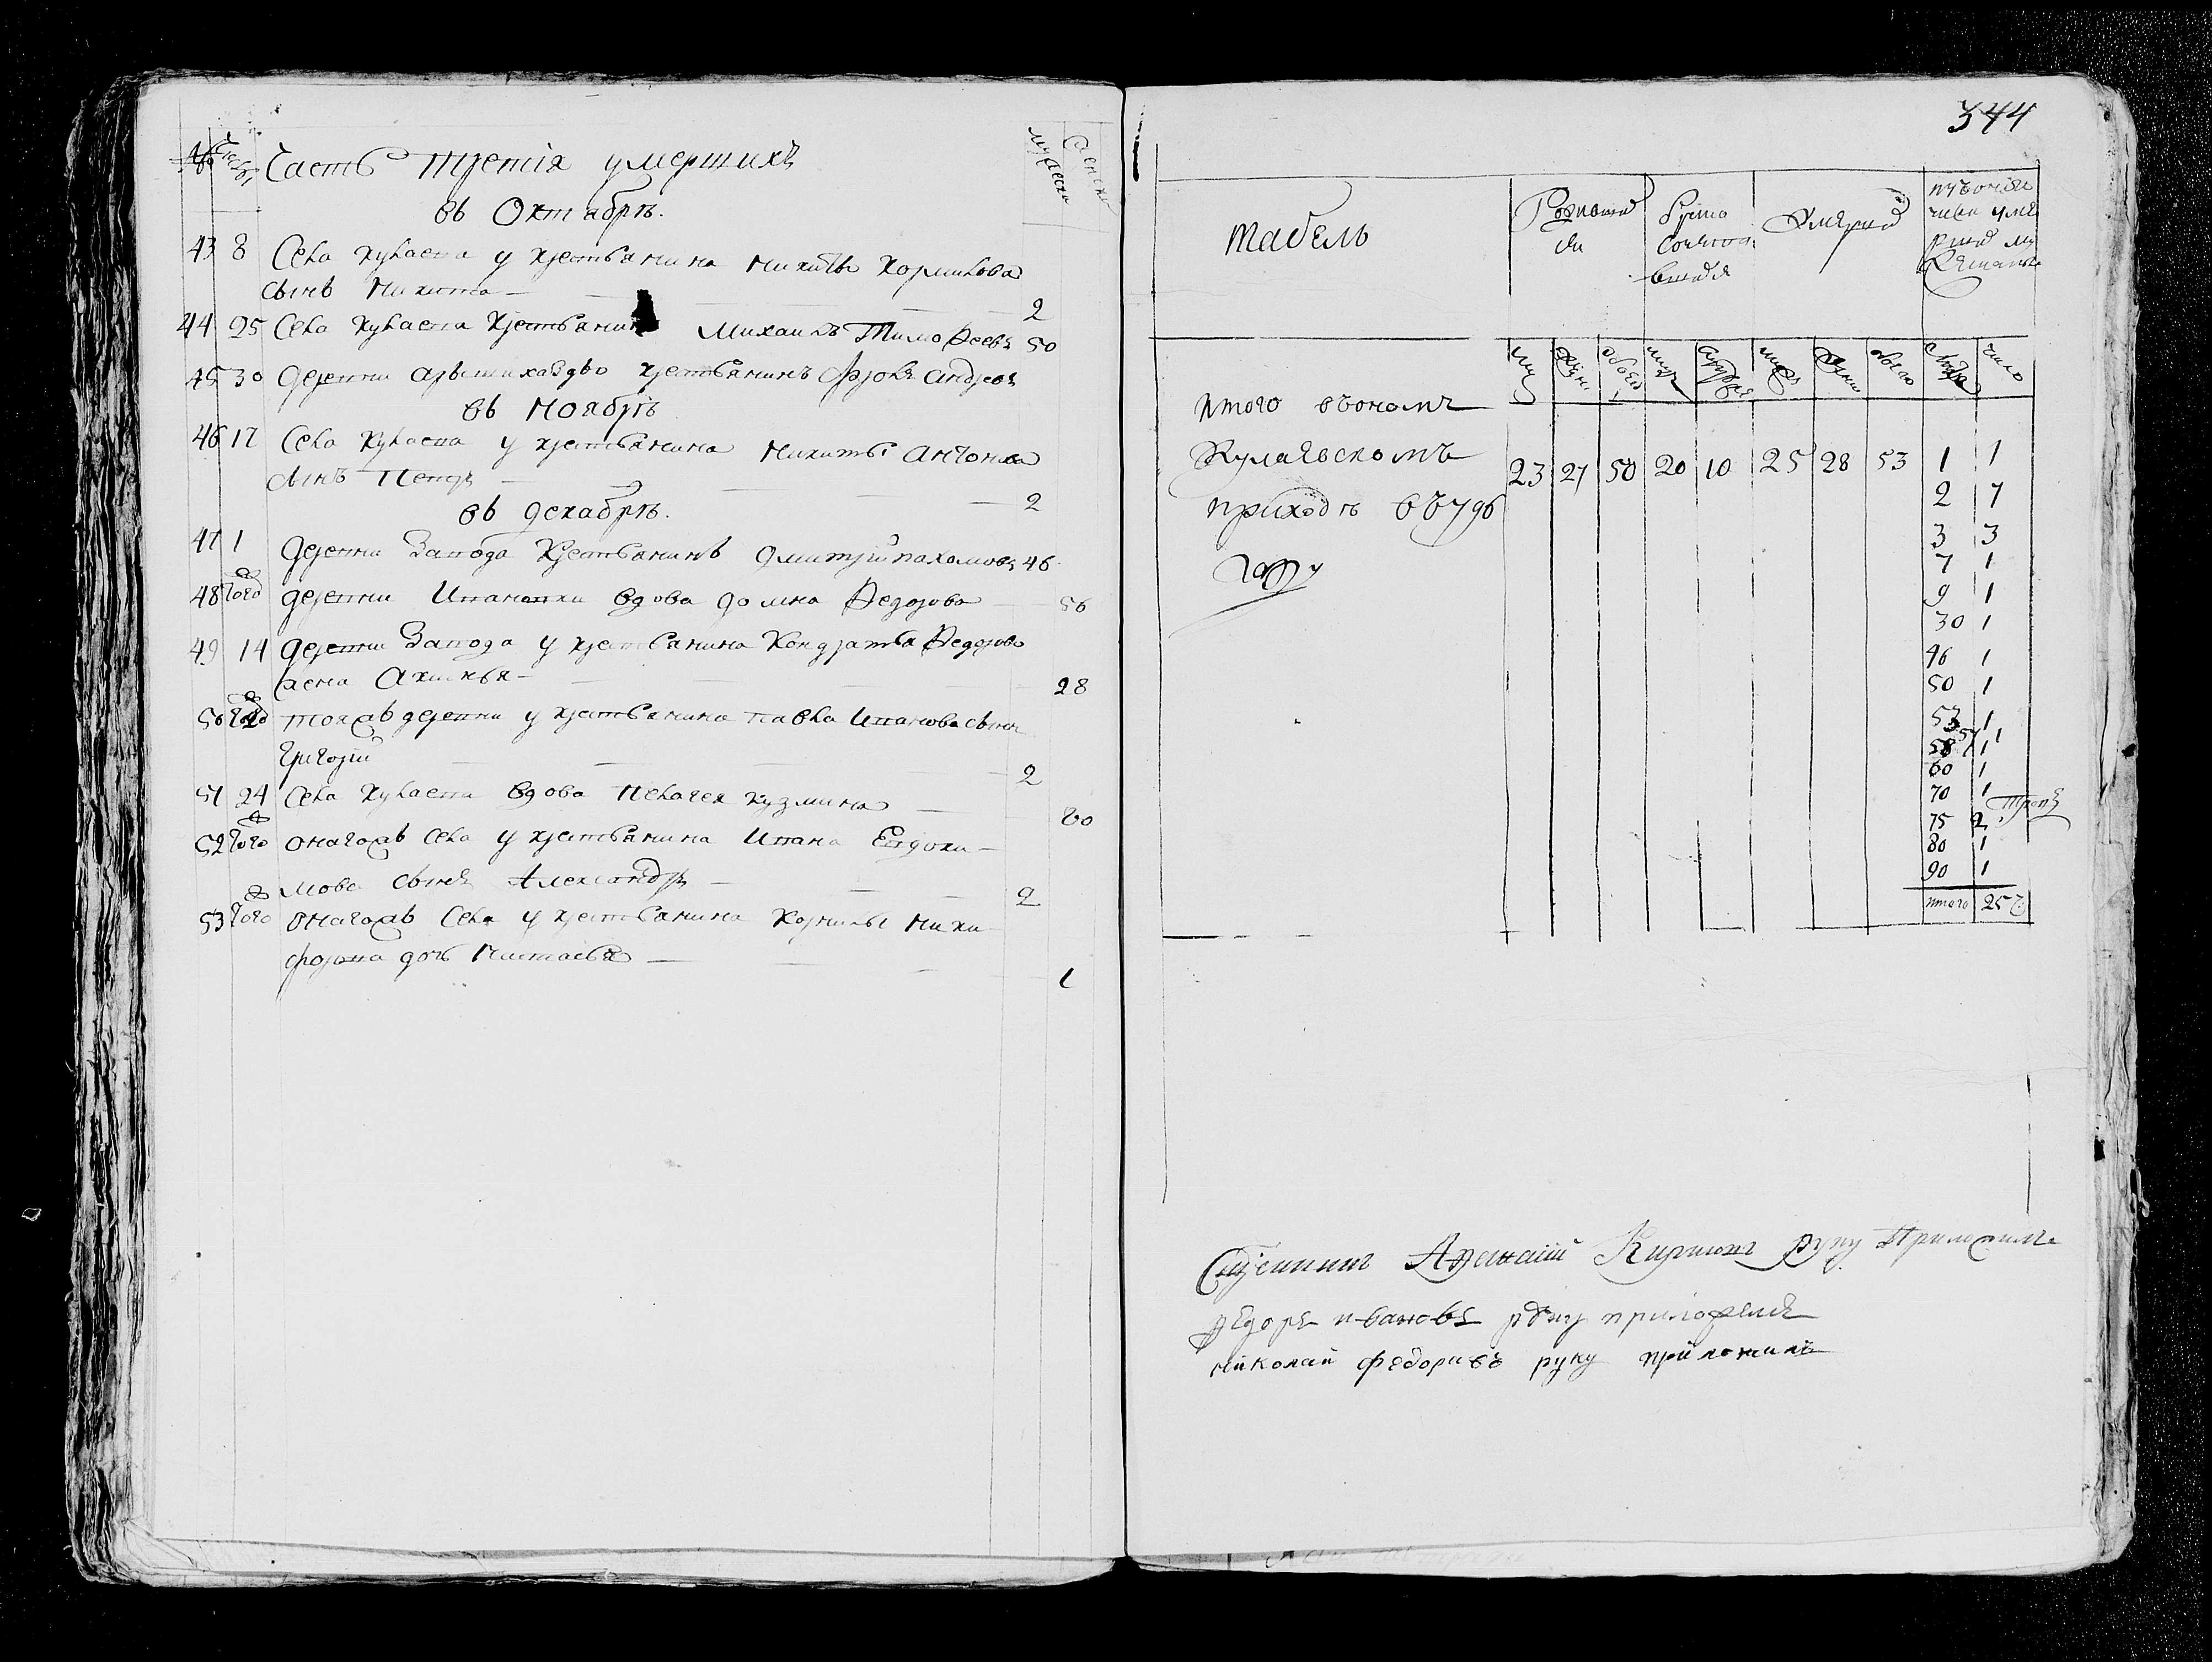 № Число Часть третія умершихъ мужеска женска
въ Октябрѣ.
43 8 Села Кулаева у крестьянина Никиты Корнилова
сынъ Никита 2
44 25 Села Кулаева Крестьянинъ Михаилъ Тимофеевъ 50
45 30 деревни крестьянинъ Фролъ Андреевъ
въ Ноябрѣ
46 17 Села Кулаева у крестьянина Никиты Антонова
сынъ Петръ 2
въ декабрѣ.
47 1 деревни Крестьянинъ Дмитрій Пахомовъ 46
48 того деревни Ивановки вдова Домна Федорова 56
49 14 деревни у крестьянина Кондратья Федорова
жена Акилина 28
50 того тояжъ деревни у крестьянина Павла Иванова сынъ
Григорій 2
51 24 Села Кулаева вдова Пелагея Кузмина 80
52 того онагожъ села у крестьянина Ивана Евдоки-
мова сынъ Александръ 2
53 того онагожъ Села у крестьянина Корнилы Ники-
форова дочь Настасья 1
344
табель
итого въ ономъ
Кулаевскомъ
приходѣ въ 796
году
23 27 50 20 10 25 28 53 1 1
2 7
3 3
7 1
9 1
30 1
46 1
50 1
53 1
57 1
60 1
70 1
75 2
80 1
90 1
итого 25
Священникъ Афанасій Кириловъ руку Приложилъ
федоръ ивановъ руку приложилъ
николай федоровъ руку приложилъ